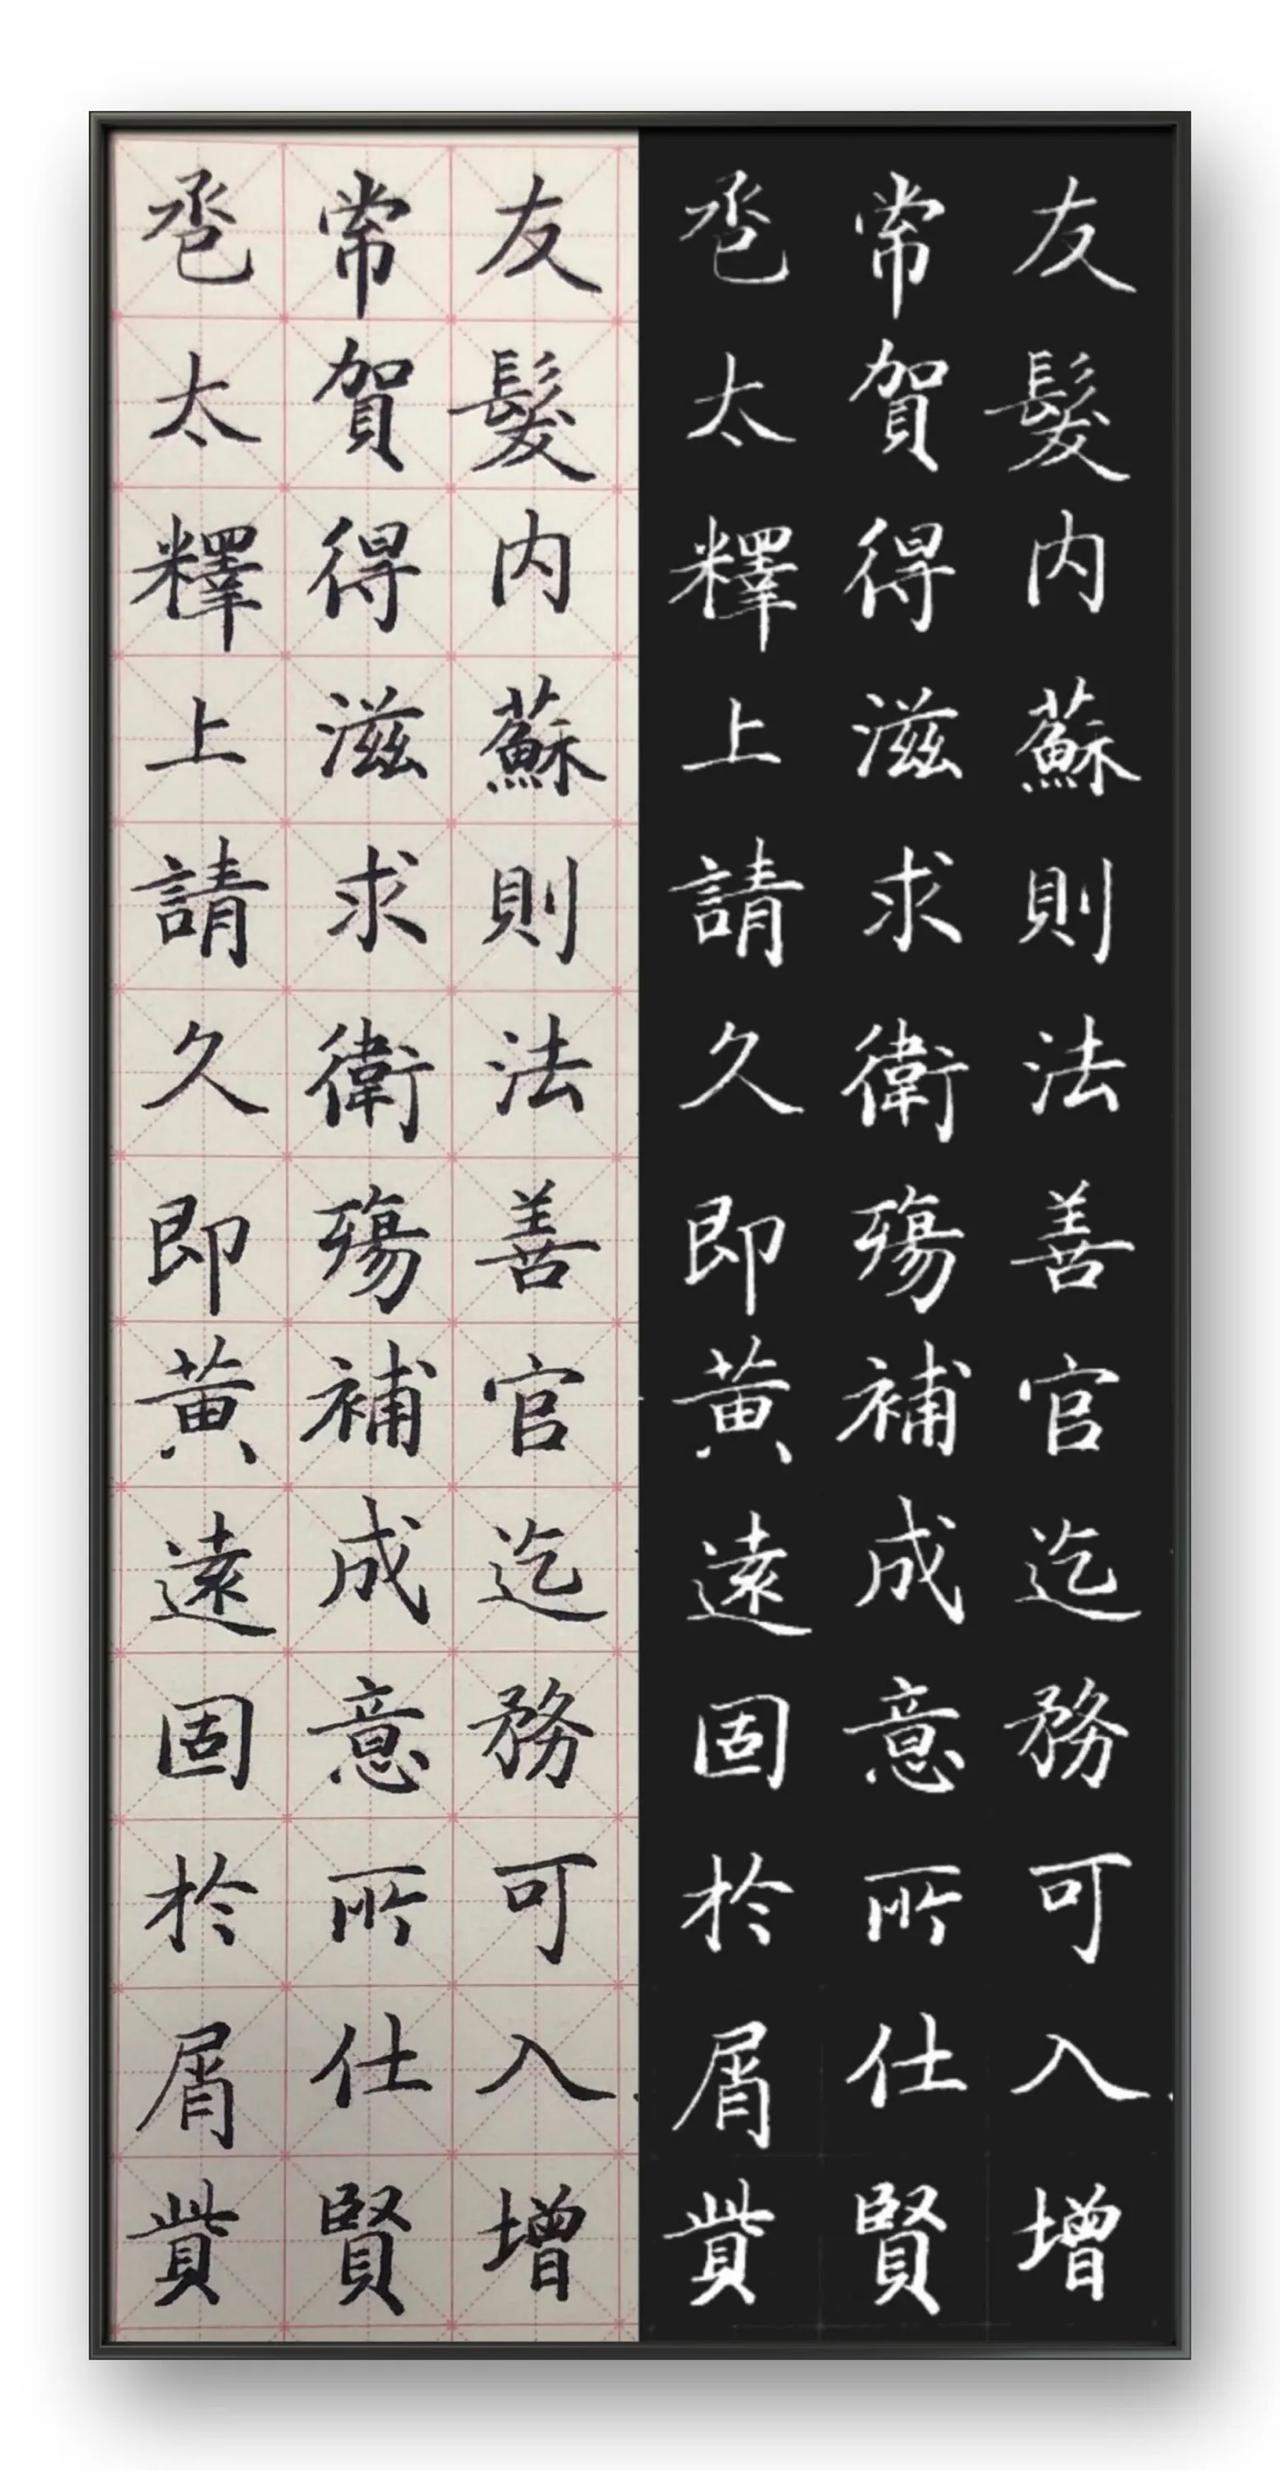 友髮内蘇則法善官迄務可入增
常賀得滋求衛殤補成意所仕賢
卺太釋上請久即黄遠固於屑貲
友髮内蘇則法善官迄務可入增
常賀得滋求衛殤補成意所仕賢
卺太釋上請久即黄遠固於屑貲